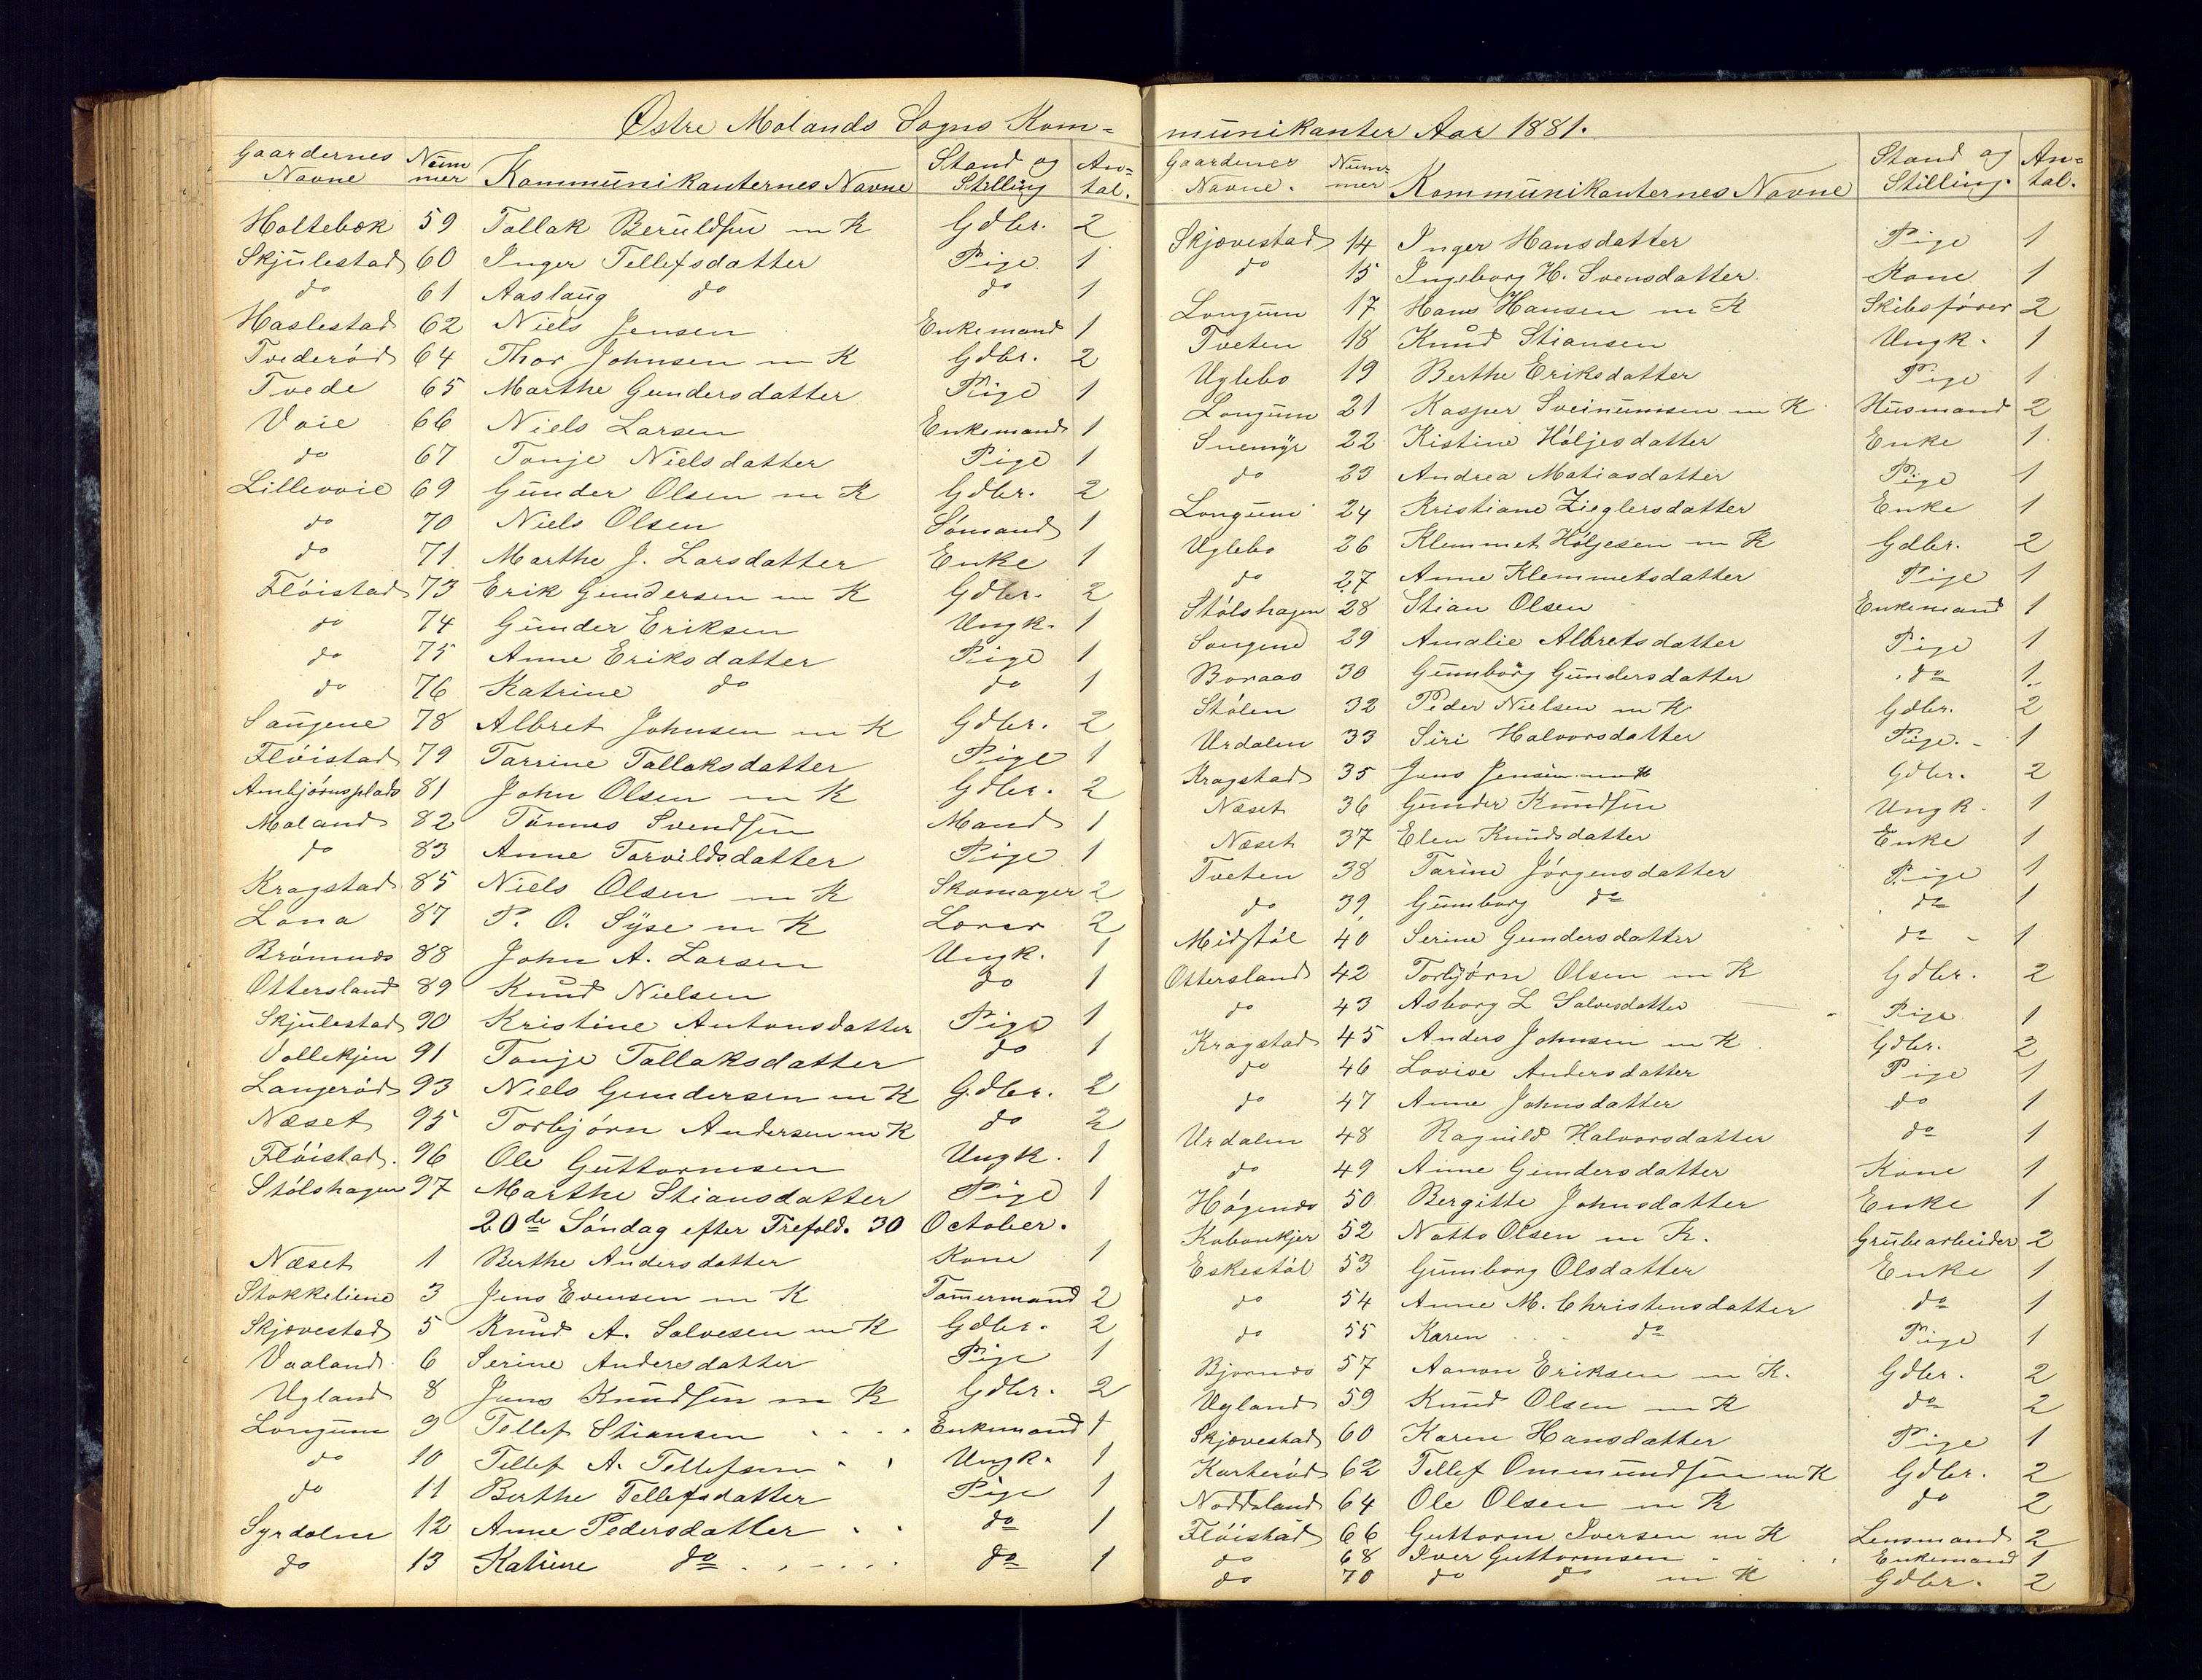 Østre Molands Sogns Kom=
Gaardernes Navne Num mer Kommunikanternes Navne Stand og Stilling An= tal.
Holtebæk 59 Tallak Beruldsen m K Gdbr. 2
Skjulestad 60 Inger Tellefsdatter Pige 1
do 61 Aaslaug do do 1
Haslestad 62 Niels Jensen Enkemand 1
Tvederød 64 Thor Johnsen m K Gdbr. 2
Tvede 65 Marthe Gundersdatter Pige 1
Vaie 66 Niels Larsen Enkemand 1
do 67 Tonje Nielsdatter Pige 1
Lillevaie 69 Gunder Olsen m K Gdbr. 2
do 70 Niels Olsen Sømand 1
do 71 Marthe J. Larsdatter Enke 1
Fløistad 73 Erik Gundersen m K Gdbr. 2
do 74 Gunder Eriksen Ungk. 1
do 75 Anne Eriksdatter Pige 1
do 76 Katrine do do 1
Saugene 78 Albret Johnsen m K Gdbr. 2
Fløistad 79 Tarrine Tallaksdatter Pige 1
Ambjørnsplads 81 John Olsen m K Gdbr. 2
Moland 82 Tønnes Svendsen Mand 1
do 83 Anne Torvildsdatter Pige 1
Kragstad 85 Niels Olsen m K Skomager 2
Lona 87 P. O. Syse m K Lærer 2
Brømnes 88 John A. Larsen Ungk. 1
Ottersland 89 Knud Nielsen do 1
Skjulestad 90 Kristine Antonsdatter Pige 1
Vollekjen 91 Tonje Tallaksdatter do 1
Langerød 93 Niels Gundersen m K Gdbr. 2
Næset 95 Torbjørn Andersen m K do 2
Fløistad. 96 Ole Guttormsen Ungk. 1
Stølshagen 97 Marthe Stiansdatter Pige 1
20de Søndag efter Trefold. 30 October.
Næset 1 Berthe Andersdatter Kone 1
Stokkeliene 3 Jens Evensen m K Tømmermand 2
Skjævestad 5 Knud A. Salvesen m K Gdbr. 2
Vaaland 6 Serine Andersdatter Pige 1
Ugland 8 Jens Knudsen m K Gdbr. 2
Longum 9 Tellef Stiansen Enkemand 1
do 10 Tellef A. Tellefsen Ungk. 1
do 11 Berthe Tellefsdatter Pige 1
Syrdalen 12 Anne Pedersdatter do 1
do 13 Katrine do do 1
munikanter Aar 1881.
Gaardenes Navne. Num= mer Kommunikanternes Navne Stand og Stilling. An= tal.
Skjævestad 14 Inger Hansdatter Pige 1
do 15 Ingeborg H. Svensdatter Kone 1
Longum 17 Hans Hansen m K Skibsfører 2
Tveten 18 Knud Stiansen Ungk. 1
Uglebo 19 Berthe Eriksdatter Pige 1
Longum 21 Kasper Sveinumsen m K Husmand 2
Snemyr 22 Kistine Høljesdatter Enke 1
do 23 Andrea Matiasdatter Pige 1
Longum 24 Kristiane Zieglersdatter Enke 1
Uglebo 26 Klemmet Høljesen m K Gdbr. 2
do 27 Anne Klemmetsdatter Pige 1
Stølshagen 28 Stian Olsen Enkemand 1
Songene 29 Amalie Albretsdatter Pige 1
Boraas 30 Gunborg Gundersdatter do 1
Stølen 32 Peder Nielsen m K Gdbr. 2
Urdalen 33 Siri Halvorsdatter Pige. 1
Kragstad 35 Jens Jensen m K Gdbr. 2
Næset 36 Gunder Knudsen Ungk. 1
Næset 37 Elen Knudsdatter Enke 1
Tveten 38 Tarine Jørgensdatter Pige 1
do 39 Gunborg do do 1
Midstøl 40 Serine Gundersdatter do 1
Ottersland 42 Torbjørn Olsen m K Gdbr. 2
do 43 Asborg L Salvesdatter Pige 1
Kragstad 45 Anders Johnsen m K Gdbr. 2
do 46 Lovise Andersdatter Pige 1
do 47 Anne Johnsdatter do 1
Urdalen 48 Ragnild Halvorsdatter do 1
do 49 Anne Gundersdatter Kone 1
Høgenes 50 Bergitte Johnsdatter Enke 1
Kobonkjer 52 Notto Olsen m K. Grubearbeider 2
Eskestøl 53 Gunborg Olsdatter Enke 1
do 54 Anne M. Christensdatter do 1
do 55 Karen do Pige 1
Bjornes 57 Aanon Eriksen m K. Gdbr. 2
Ugland 59 Knud Olsen m K do 2
Skjævestad 60 Karen Hansdatter Pige 1
Karterød 62 Tellef Ommundsen m K Gdbr. 2
Noddeland 64 Ole Olsen m K do 2
Fløistad 66 Guttorm Iversen m K Lensmand 2
do 68 Iver Guttormsen Enkemand 1
do 70 do do m K Gdbr. 2